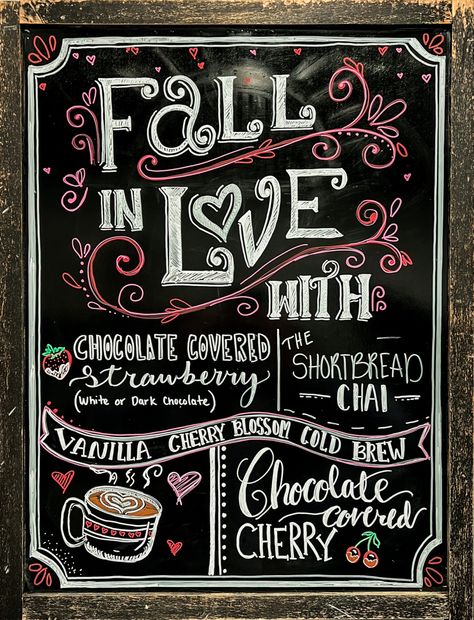 FALL
IN LOVE
WITH
CHOCOLATE COVERED
Strawberry
(White or Dark Chocolate)
THE
SHORTBREAD
CHAI
VANILLA CHERRY BLOSSOM COLD BREW
Chocolate
covered
CHERRY